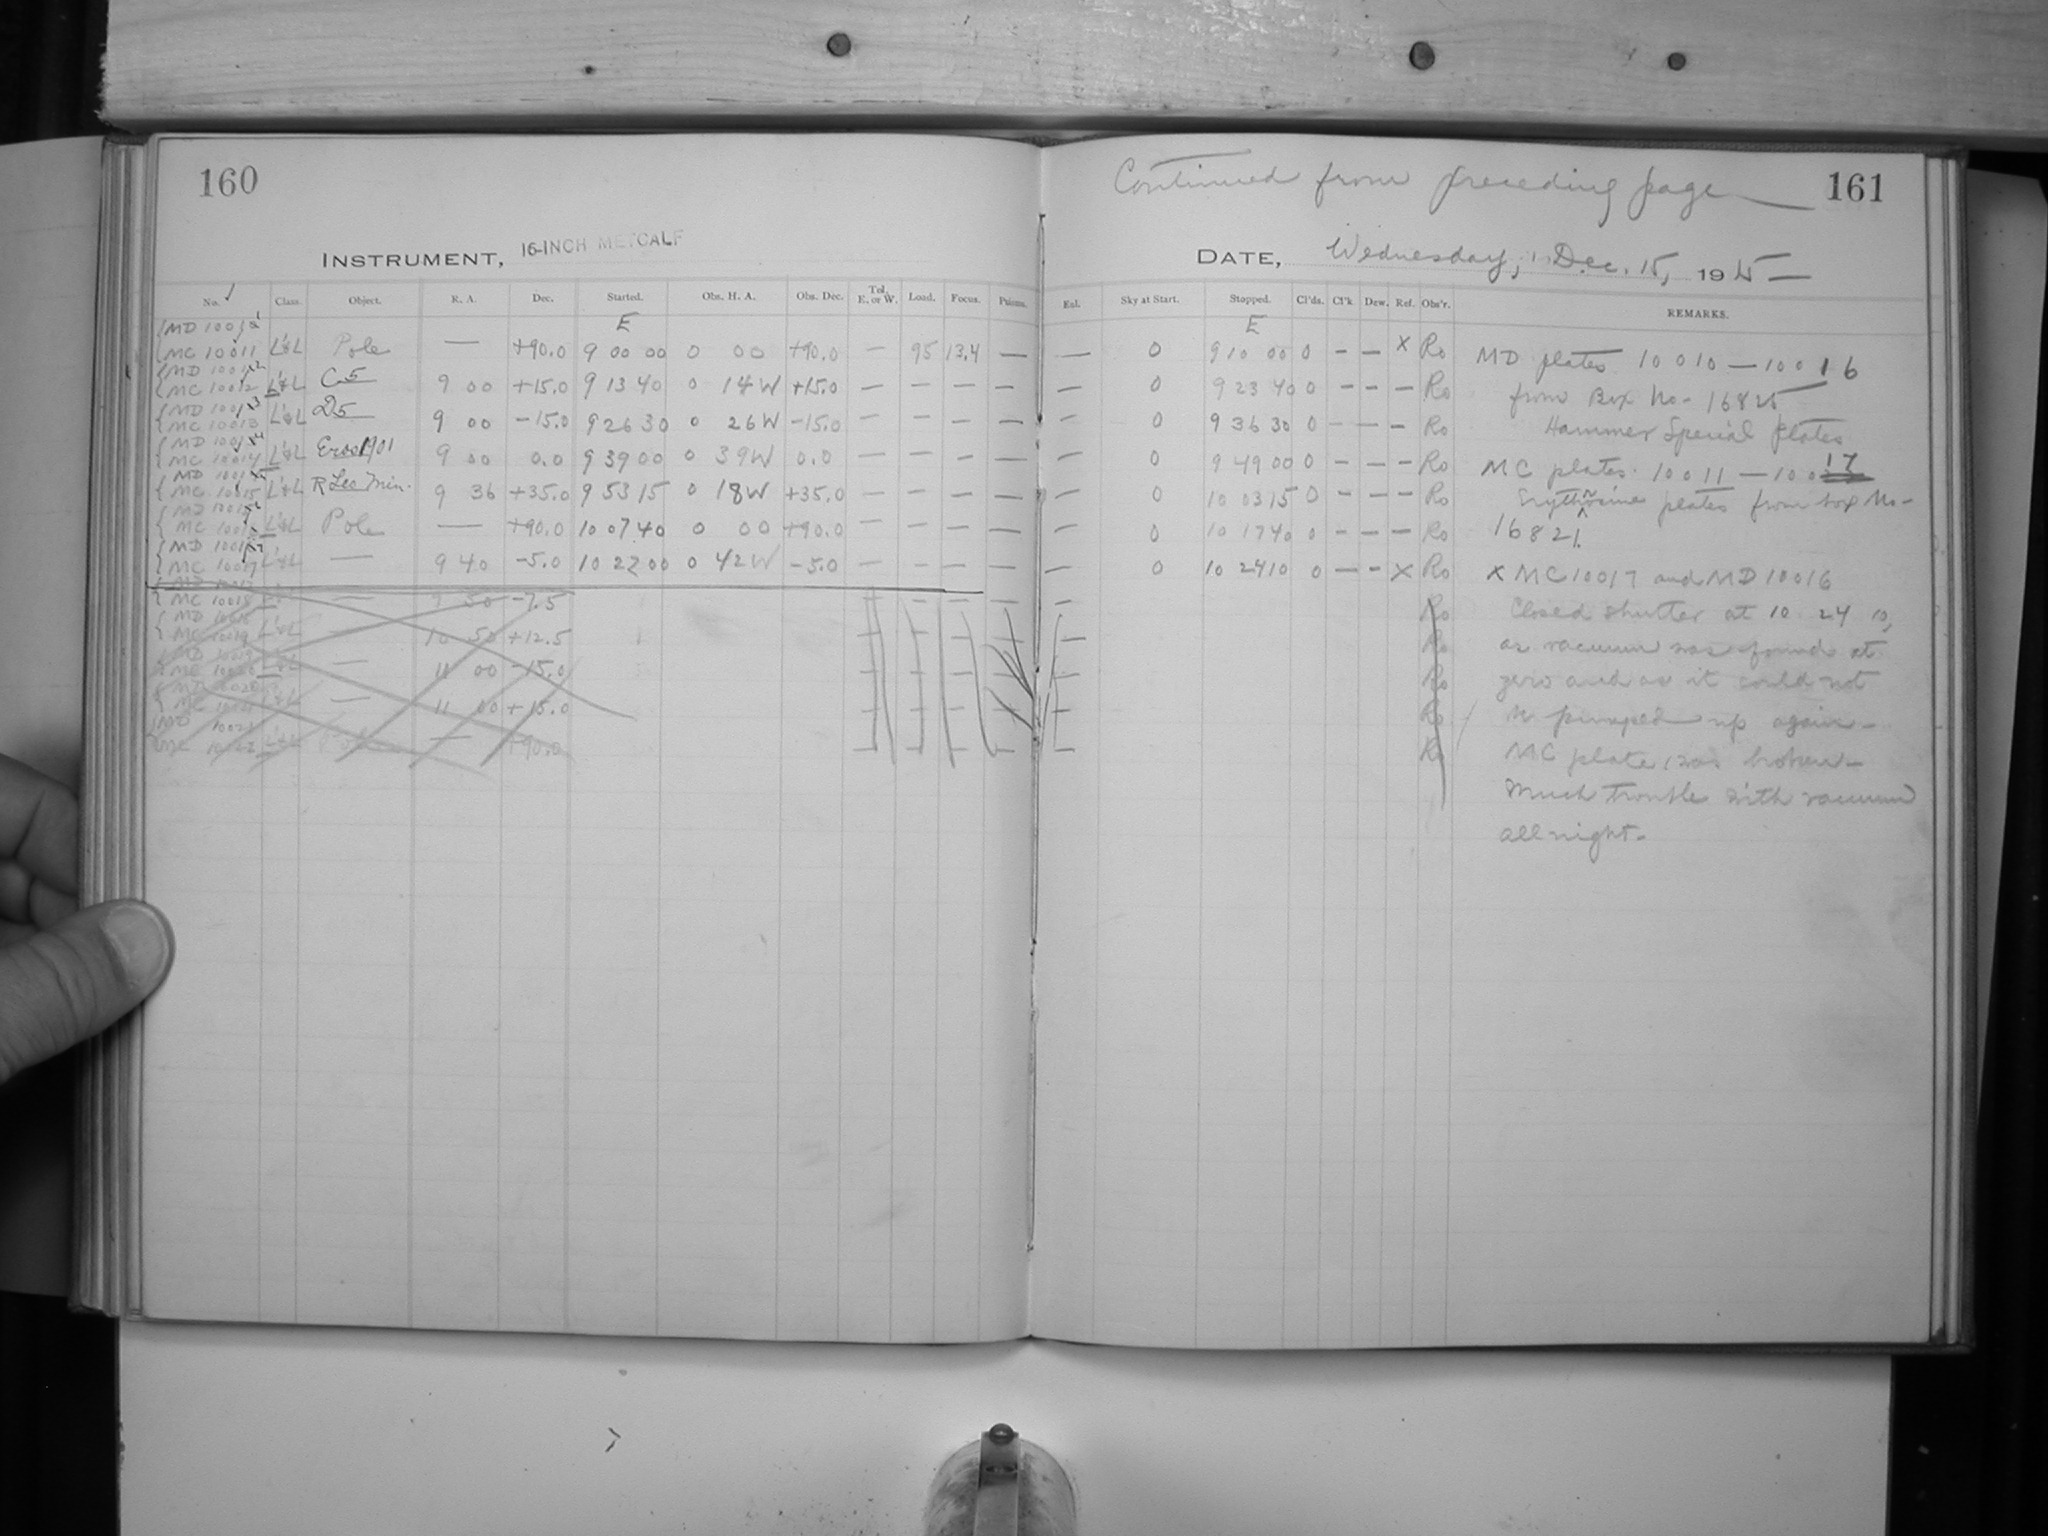 160
Continued from preceding page
161
INSTRUMENT, 16-INCH METCALF
DATE, Wednesday, Dec. 15, 1915
No. Class. Object. R. A. Dec. Started. Obs. H. A. Obs. Dec. Tel. E. or W. Load. Focus. Enl. Sky at Start. Stopped. Cl'ds. Cl'k. Dew. Ref. Obs'r. REMARKS.
E E
MC 10011 L&L Pole — +90.0 9 00 00 0 00 +90.0 — 95 13.4 — — 0 9 10 00 0 – – x Ro
MC 10012 L&L C5 9 00 +15.0 9 13 40 0 14W +15.0 — — — — — 0 9 23 40 0 – – – Ro
MC 10013 L&L D5 9 00 -15.0 9 26 30 0 26W -15.0 — — — — — 0 9 36 30 0 – – – Ro
MC 10014 L&L 9 00 0.0 9 39 00 0 39W 0.0 — — — — — 0 9 49 00 0 – – – Ro
MC 10015 L&L R Leo Min. 9 36 +35.0 9 53 15 0 18W +35.0 — — — — — 0 10 03 15 0 – – – Ro
MC L&L Pole — +90.0 10 07 40 0 00 +90.0 — — — — — 0 10 17 40 0 – – – Ro
MC 10017 L&L — 9 40 -5.0 10 22 00 0 42W -5.0 — — — — — 0 10 24 10 0 – – x Ro
MC 10018 — 9 50 -7.5 Ro
MC 10019 L&L — 10 50 +12.5 Ro
MC 10020 L&L — 11 00 -15.0 Ro
MC 10021 L&L — 11 00 +15.0 Ro
MD 10021
MC 10022 L&L Pole — +90.0 Ro
MD plates 10010 — 10016
from Box No. 16825
Hammer Special Plates
MC plates 10011 — 10017
Erythrosine plates from box No.
16821.
x MC 10017 and MD 10016
Closed shutter at 10 24 10,
as vacuum was found at
zero and as it could not
be pumped up again –
MC plate was broken –
Much trouble with vacuum
all night.